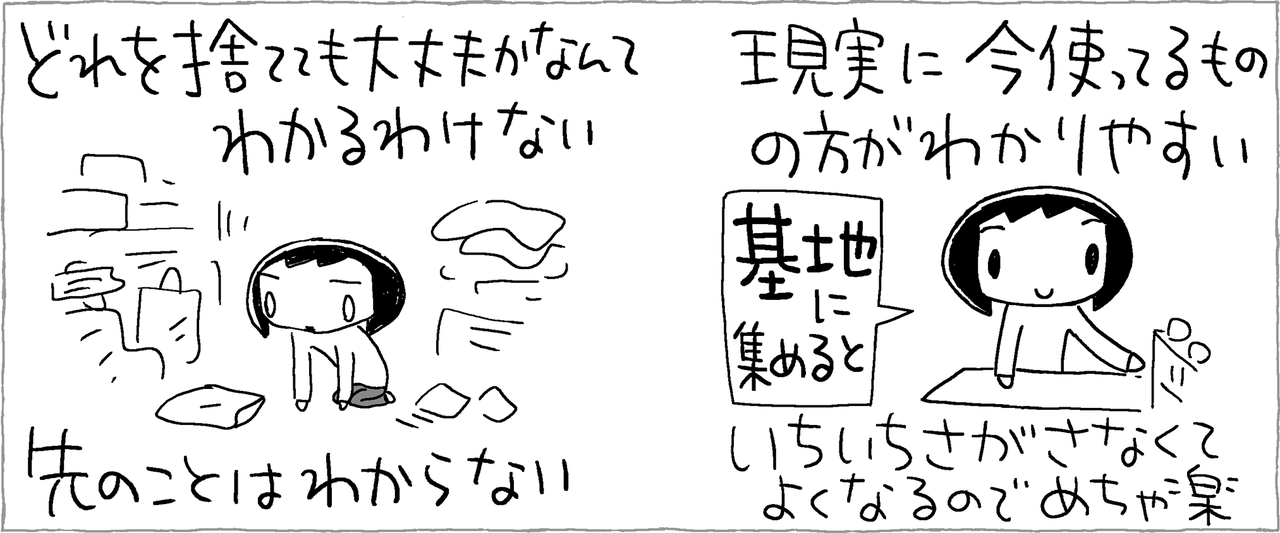 どれを捨てても大丈夫かなんて
わかるわけない
先のことはわからない
現実に今使ってるもの
の方がわかりやすい
基地
に
集めると
いちいちさがさなくて
よくなるのでめちゃ楽